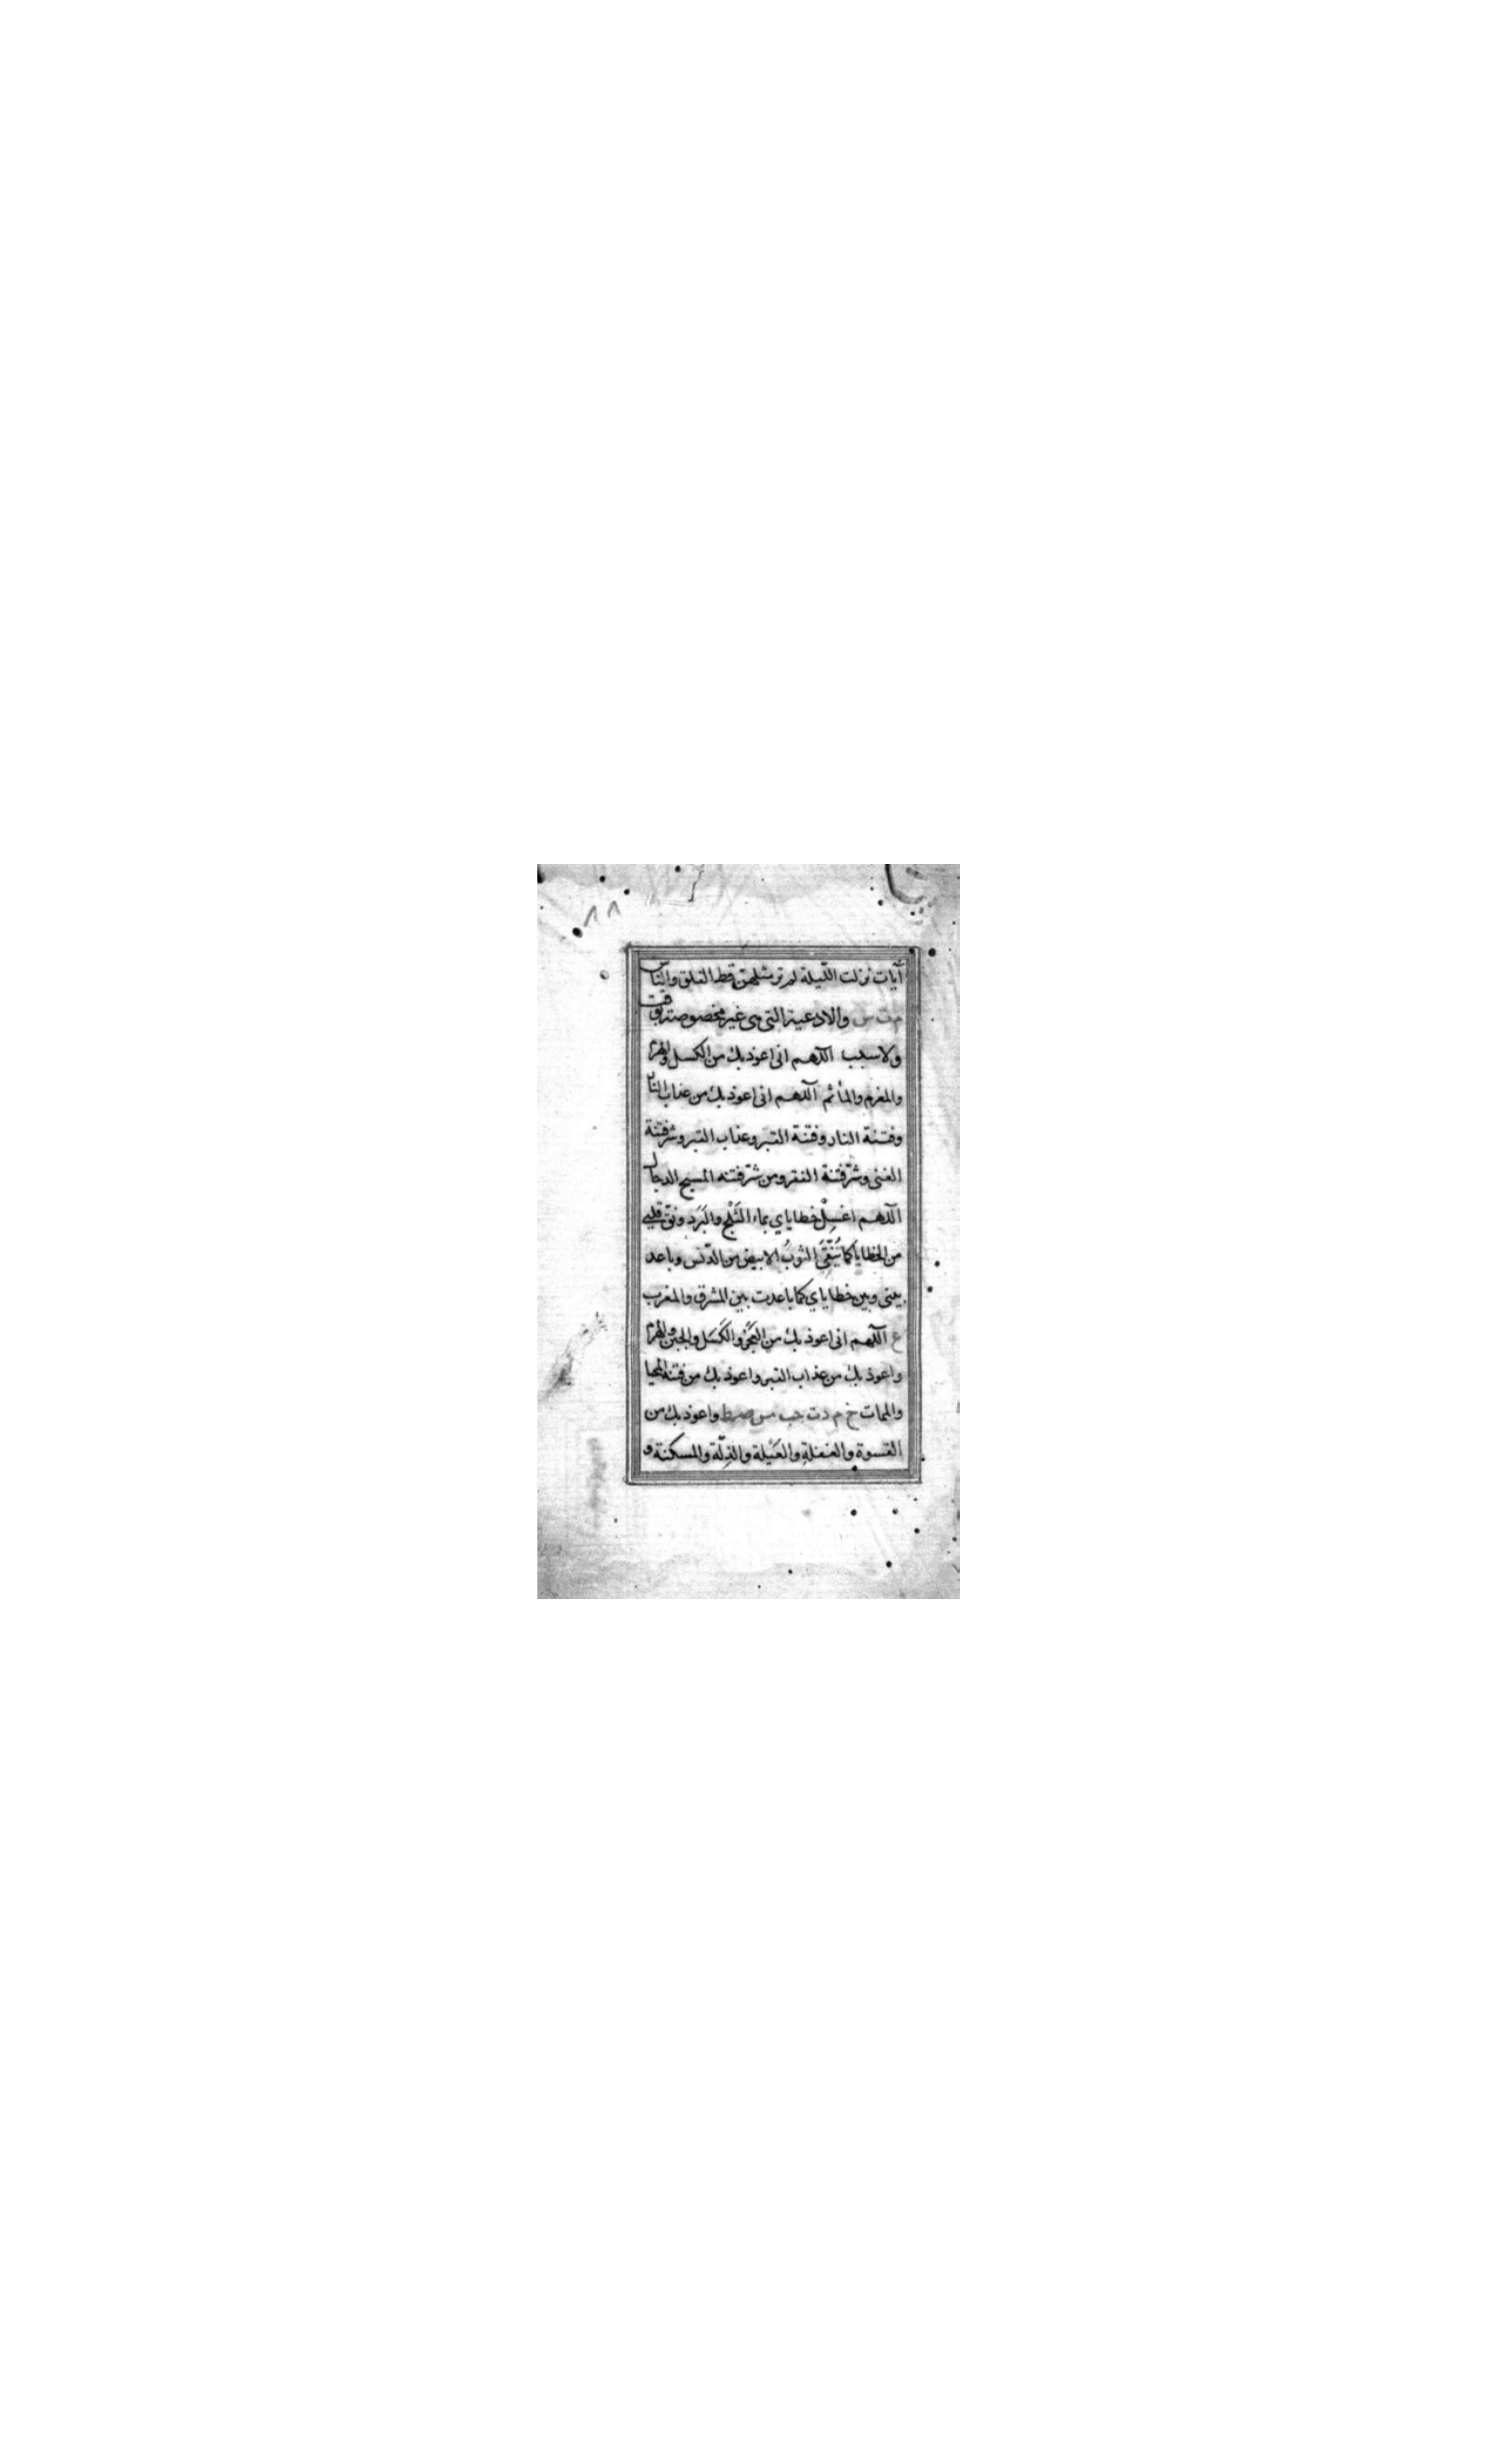 ٨٨
آيات نزلت اللّيلة لم تر مثلهنّ قط الفلق والنّاس
م ت س والادعية التي هي غير مخصوصة بوقت
ولا سبب اللّهم اني اعوذ بك من الكسل والهرم
والمغرم والمأثم اللّهم اني اعوذ بك من عذاب النار
وفتنة النار وفتنة القبر وعذاب القبر وشر فتنة
الغنى وشرّ فتنة الفقر ومن شرّ فتنه المسيح الدجال
اللّهم اغسِلْ خطاياي بماء الثَلْج والبَرَد ونقّ قلبي
من الخطايا كما يُنَقَّى الثوبُ الابيض من الدّنس وباعد
بيني وبين خطاياي كما باعدت بين المشرق والمغرب
ع اللّهم اني اعوذ بك من العَجْز والكَسَل والجبن والهرم
واعوذ بك من عذاب القبر واعوذ بك من فتنة المحيا
والممات خ م د ت حب مس صط واعوذ بك من
القسوة والغفلةِ والعَيْلة والذِلّة والمسكنة و